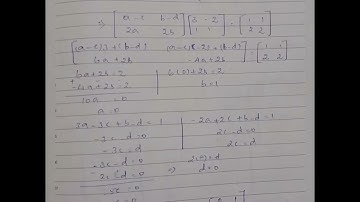 ⇒ [ a-c b-d ] [ 3 -2 ] = [ 1 1 ]
[ 2a 2b ] [ 1 1 ] [ 2 2 ]
[ (a-c)3+(b-d) (a-c)(-2)+(b-d) ] = [ 1 1 ]
[ 6a+2b -4a+2b ] [ 2 2 ]
6a+2b=2 6(0)+2b=2
-4a+2b=2 b=1
10a =0
a=0
3a-3c+b-d=1 -2a+2c+b-d=1
-3c-d=0 2c-d=0
-3c=d 2c=d
-3c-d=0 2(0)=d
2c-d=0 ⇒ d=0
-5c=0